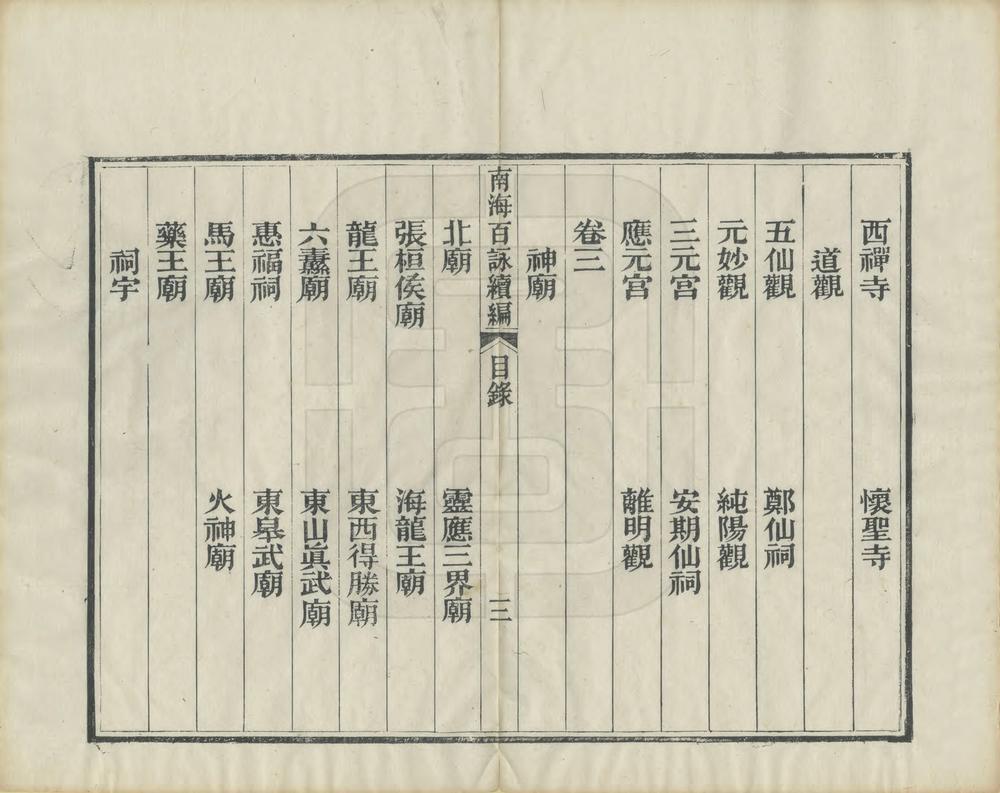 西禪寺　懷聖寺
道觀
五仙觀　鄭仙祠
元妙觀　純陽觀
三元宮　安期仙祠
應元宮　離明觀
卷三
神廟
南海百詠續編　目錄　三
北廟　靈應三界廟
張桓侯廟　海龍王廟
龍王廟　東西得勝廟
六纛廟　東山眞武廟
惠福祠　東皋武廟
馬王廟　火神廟
藥王廟
祠宇